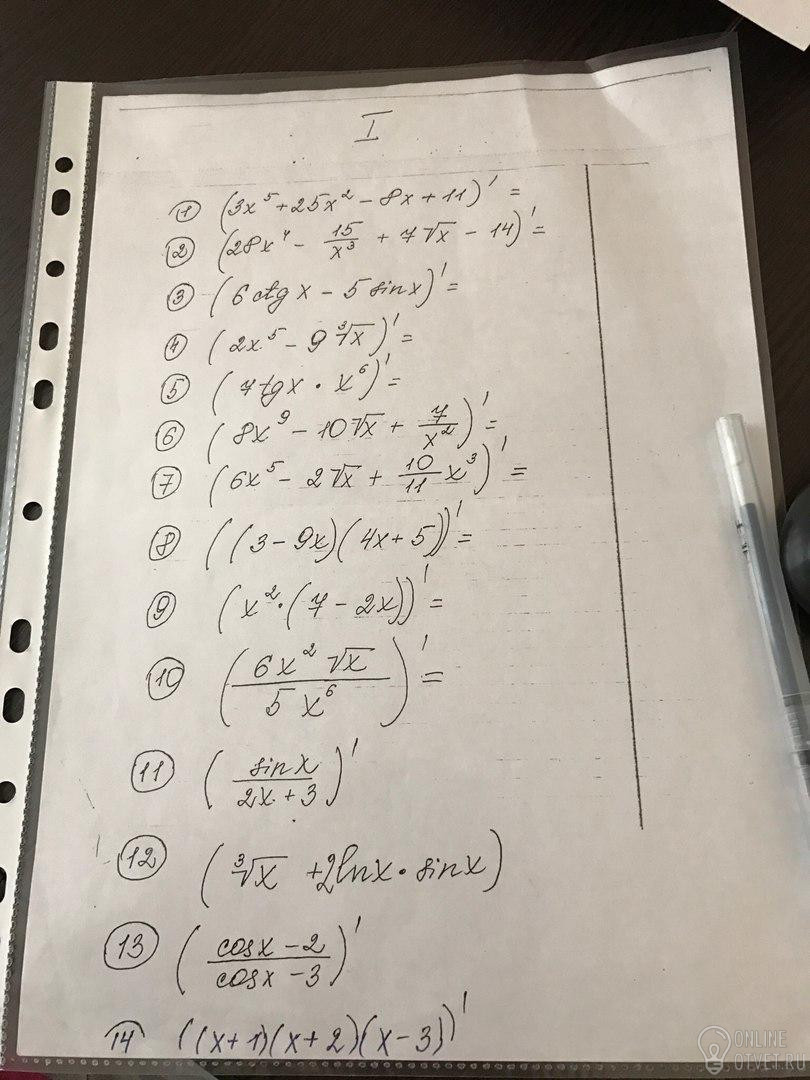 I
① (3x⁵ + 25x² − 8x + 11)' =
② (28x⁴ − 15/x³ + 7√x − 14)' =
③ (6 ctg x − 5 sin x)' =
④ (2x⁵ − 9 ∛x)' =
⑤ (7 tg x · x⁶)' =
⑥ (8x⁹ − 10√x + 7/x²)' =
⑦ (6x⁵ − 2√x + 10/11 x³)' =
⑧ ((3 − 9x)(4x + 5))' =
⑨ (x² · (7 − 2x))' =
⑩ (6x² √x / 5x⁶)' =
⑪ (sin x / 2x + 3)'
⑫ (∛x + 2 ln x · sin x)
⑬ (cos x − 2 / cos x − 3)'
14 ((x + 1)(x + 2)(x − 3))'
ONLINE
OTVET.RU